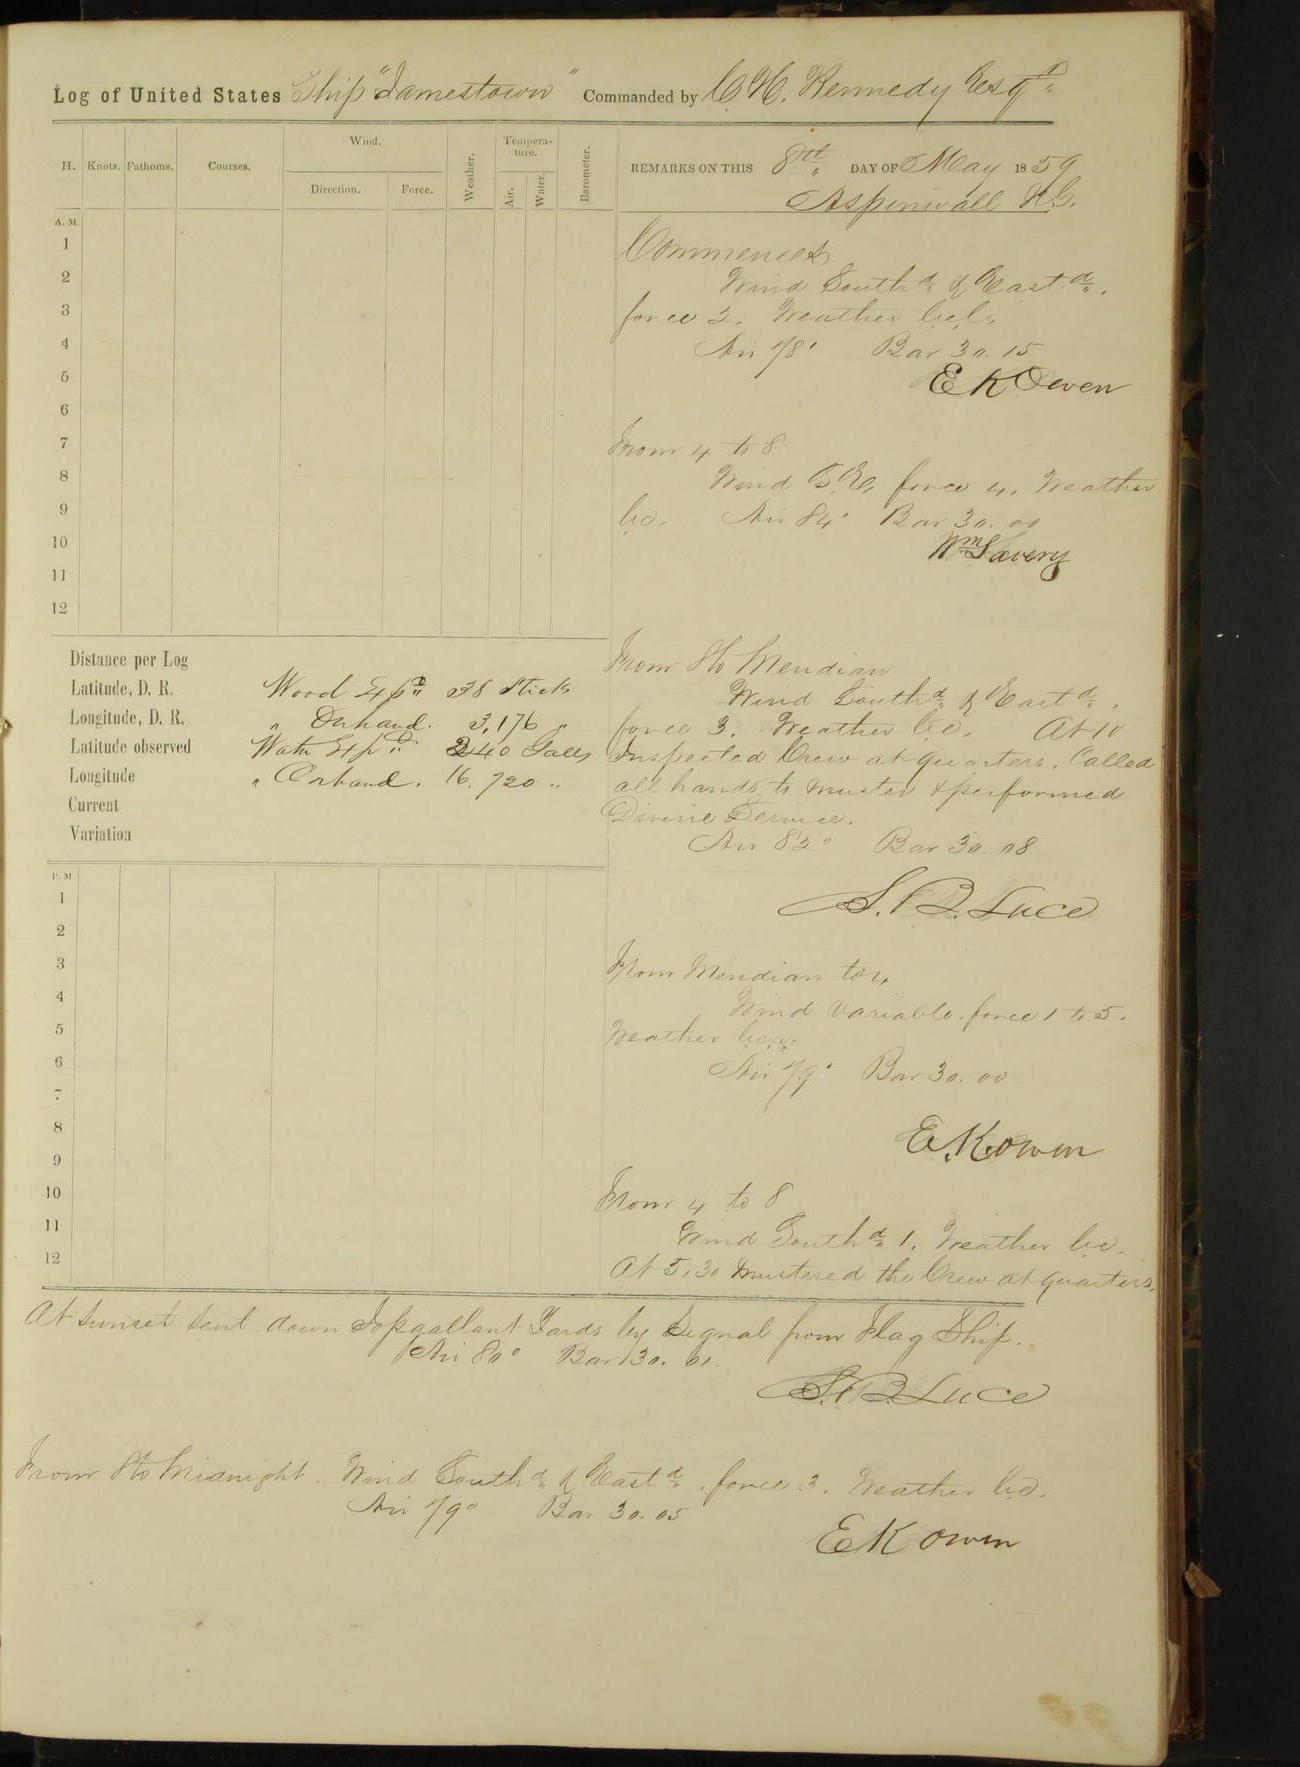 Log of United States Ship "Jamestown" Commanded by C. H. Kennedy Esqr.
H. Knots. Fathoms. Courses. Wind. Direction. Force. Weather. Tempera-ture. Air. Water. Barometer.
REMARKS ON THIS 8th DAY OF May 1859
Aspinwall N.G.
A. M.
1
2
3
4
5
6
7
8
9
10
11
12
Commences
Wind Southd & Eastd.
force 2. Weather
Air 78° Bar 30.15
E K Owen
From 4 to 8
Wind S.E. force 4. Weather
b.c. Air 84° Bar 30.00
Wm Savery
Distance per Log
Latitude, D. R.
Longitude, D. R.
Latitude observed
Longitude
Current
Variation
Wood Expd 38 Sticks
" Onhand. 3,176 "
Water Expd. 240 Galls
" Onhand. 16.720 "
From 8 to Meridian
Wind Southd & Eastd.
force 3. Weather b.c. At 10
Inspected Crew at quarters. Called
all hands to muster & performed
Divine Service.
Air 82° Bar 30.08
S. B. Luce
P. M.
1
2
3
4
5
6
7
8
9
10
11
12
From Meridian to 4
Wind variable. force 1 to 5.
Weather
Air 79° Bar 30.00
E. K. Owen
From 4 to 8
Wind Southd 1. Weather b.c.
At 5.30 Mustered the Crew at quarters.
At Sunset sent down Topgallant Yards by Signal from Flag Ship.
Air 80° Bar 30.01.
S. B. Luce
From 8 to Midnight. Wind Southd & Eastd. force 3. Weather b.c.
Air 79° Bar 30.05
E K Owen